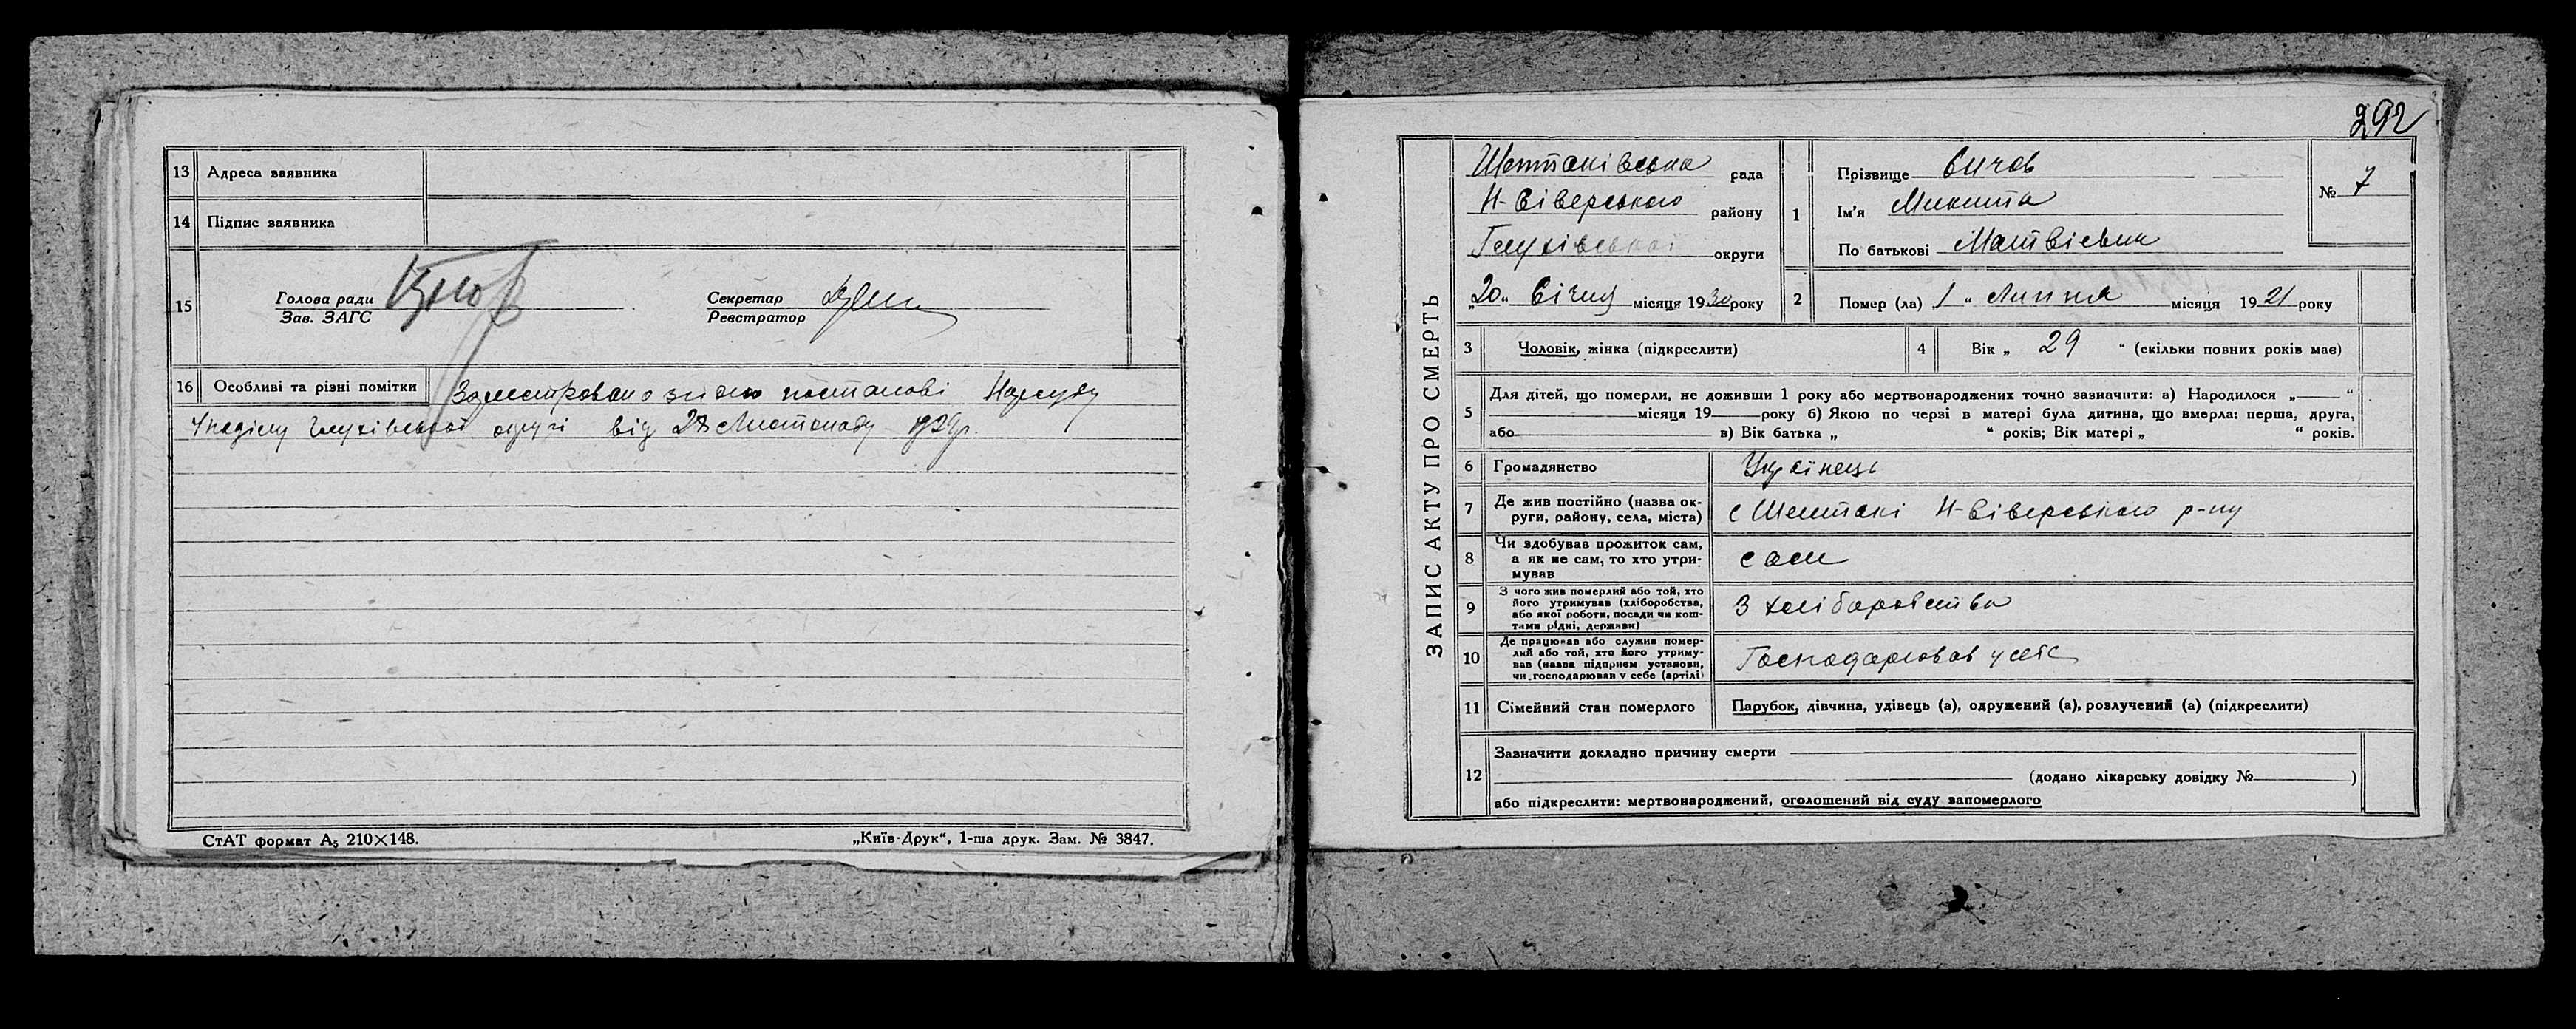 13 Адреса заявника
14 Підпис заявника
15 Голова ради
Зав. ЗАГС
Секретар
Реєстратор
16 Особливі та різні помітки Зареєстровано згідно постанові Нарсуду
4 поділу Глухівської округи від 28 Листопаду 1929р.
СтАТ формат А₅ 210×148.
„Київ-Друк“, 1-ша друк. Зам. № 3847.
292
ЗАПИС АКТУ ПРО СМЕРТЬ
Шептаківська рада
Н-Сіверського району
Глухівської округи
„20“ Січня місяця 1930 року
1 Прізвище Сичов
Ім'я Микита
По батькові Матвієвич
№ 7
2 Помер (ла) 1 “ Липня місяця 1921 року
3 Чоловік, жінка (підкреслити)
4 Вік „ 29 “ (скільки повних років має)
5 Для дітей, що померли, не доживши 1 року або мертвонароджених точно зазначити: а) Народилося „ “
місяця 19 року б) Якою по черзі в матері була дитина, що вмерла: перша, друга,
або в) Вік батька „ “ років; Вік матері „ “ років.
6 Громадянство Українець
7 Де жив постійно (назва ок-
руги, району, села, міста) с Шептакі Н-Сіверського р-ну
8 Чи здобував прожиток сам,
а як не сам, то хто утри-
мував сам
9 З чого жив померлий або той, хто
його утримував (хліборобства,
або якої роботи, посади чи кош-
тами рідні, держави) З хліборобства
10 Де працював або служив помер-
лий або той, хто його утриму-
вав (назва підприєм установи,
чи господарював у себе (артілі) Господарював у себе
11 Сімейний стан померлого Парубок, дівчина, удівець (а), одружений (а), розлучений (а) (підкреслити)
12 Зазначити докладно причину смерти
(додано лікарську довідку № )
або підкреслити: мертвонароджений, оголошений від суду запомерлого